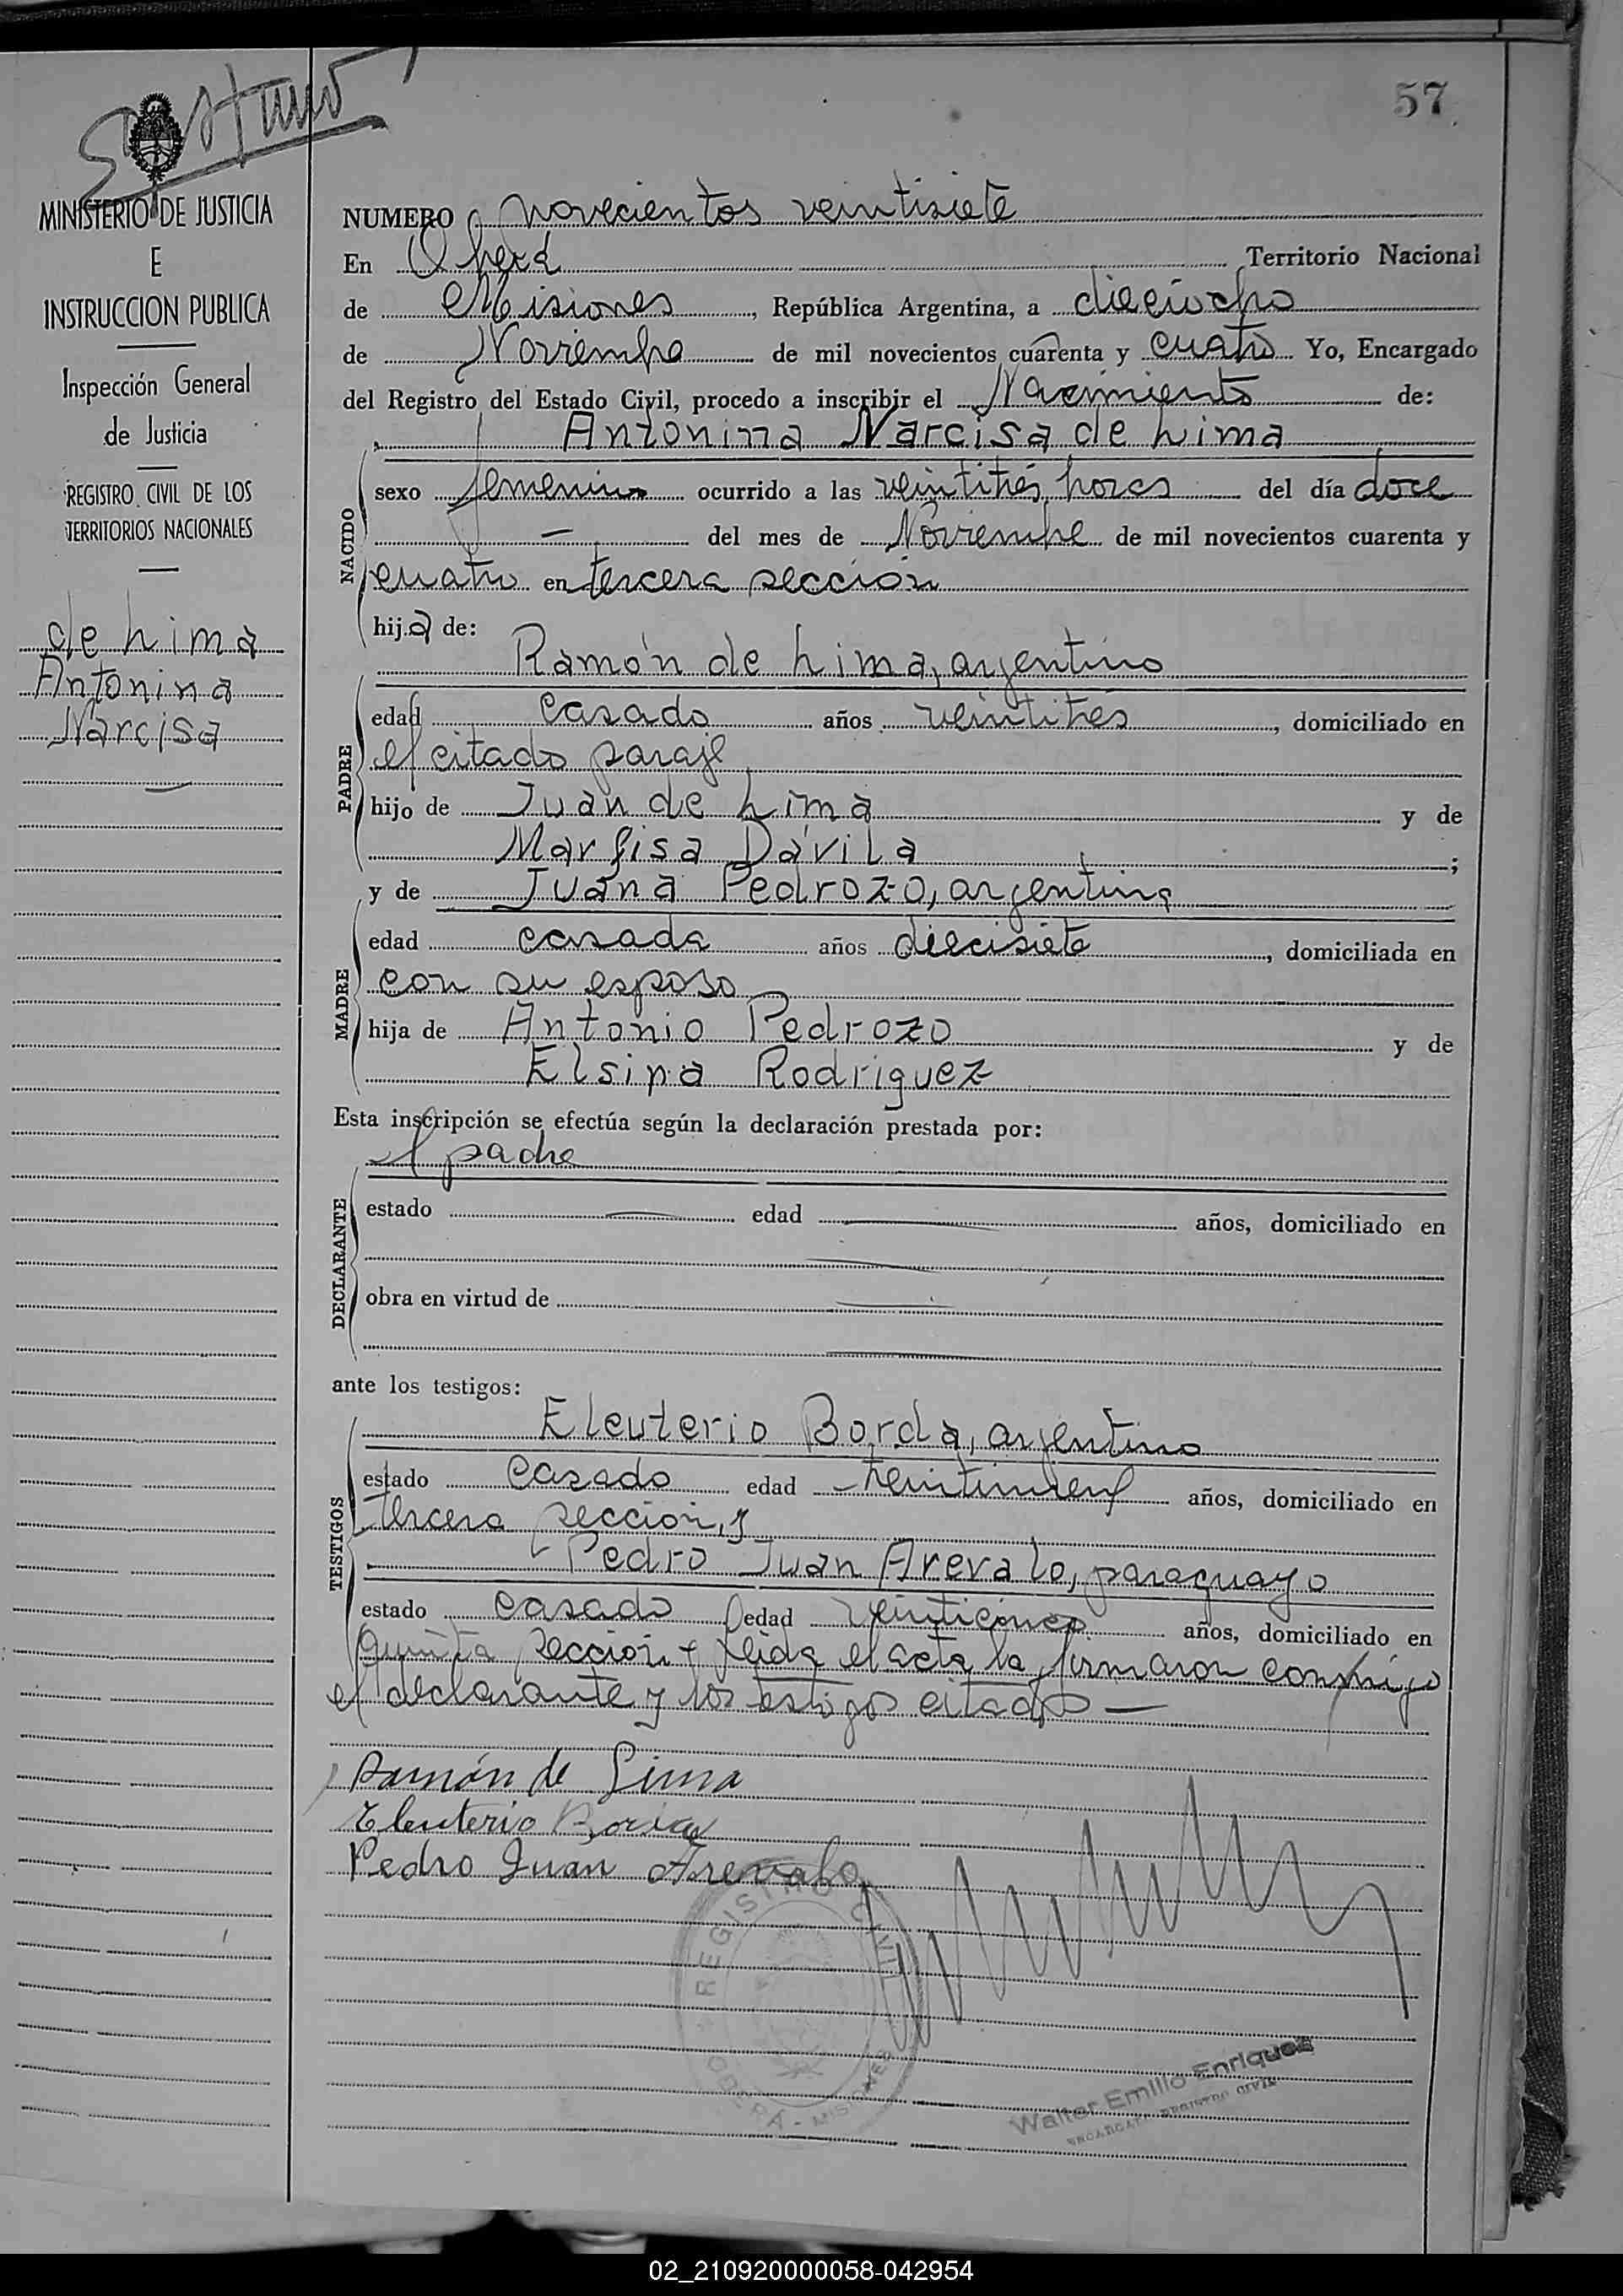 57
MINISTERIO DE JUSTICIA
E
INSTRUCCION PUBLICA
Inspección General
de Justicia
REGISTRO CIVIL DE LOS
TERRITORIOS NACIONALES
de Lima
Antonina
Narcisa
NUMERO novecientos veintisiete
En Oberá Territorio Nacional
de Misiones, República Argentina, a dieciocho
de Noviembre de mil novecientos cuarenta y cuatro Yo, Encargado
del Registro del Estado Civil, procedo a inscribir el Nacimiento de:
Antonina Narcisa de Lima
NACIDO
sexo femenino ocurrido a las veintitrés horas del día doce
— del mes de Noviembre de mil novecientos cuarenta y
cuatro en tercera sección
hija de:
Ramón de Lima, argentino
PADRE
edad casado años veintitrés, domiciliado en
el citado paraje
hijo de Juan de Lima y de
Marfisa Dávila;
y de Juana Pedrozo, argentina
MADRE
edad casada años diecisiete, domiciliada en
con su esposo
hija de Antonio Pedrozo y de
Elsina Rodriguez
Esta inscripción se efectúa según la declaración prestada por:
el padre
DECLARANTE
estado — edad — años, domiciliado en
—
obra en virtud de —
—
ante los testigos:
Eleuterio Borda, argentino
TESTIGOS
estado casado edad años, domiciliado en
tercera sección, y
Pedro Juan Arevalo, paraguayo
estado casado edad veinticinco años, domiciliado en
quinta sección Leida el acta la firmaron conmigo
el declarante y los testigos citados —
Ramón de Lima
Eleuterio Borda
Pedro Juan Arevalo
REGISTRO CIVIL
OBERA - MISIONES
Walter Emilio Enriquez
ENCARGADO REGISTRO CIVIL
02_210920000058-042954